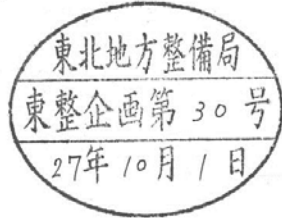 東北地方整備局
東整企画第30号
27年10月1日